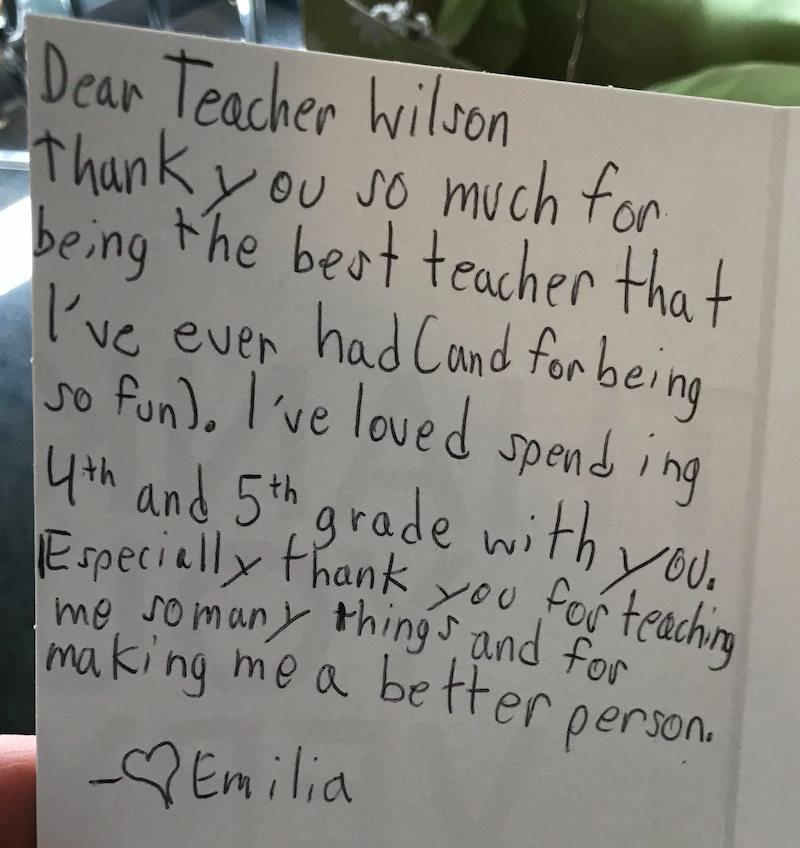 Dear Teacher Wilson
Thank you so much for
being the best teacher that
I've ever had (and for being
so fun). I've loved spending
4th and 5th grade with you.
Especially thank you for teaching
me so many things and for
making me a better person.
-♡ Emilia